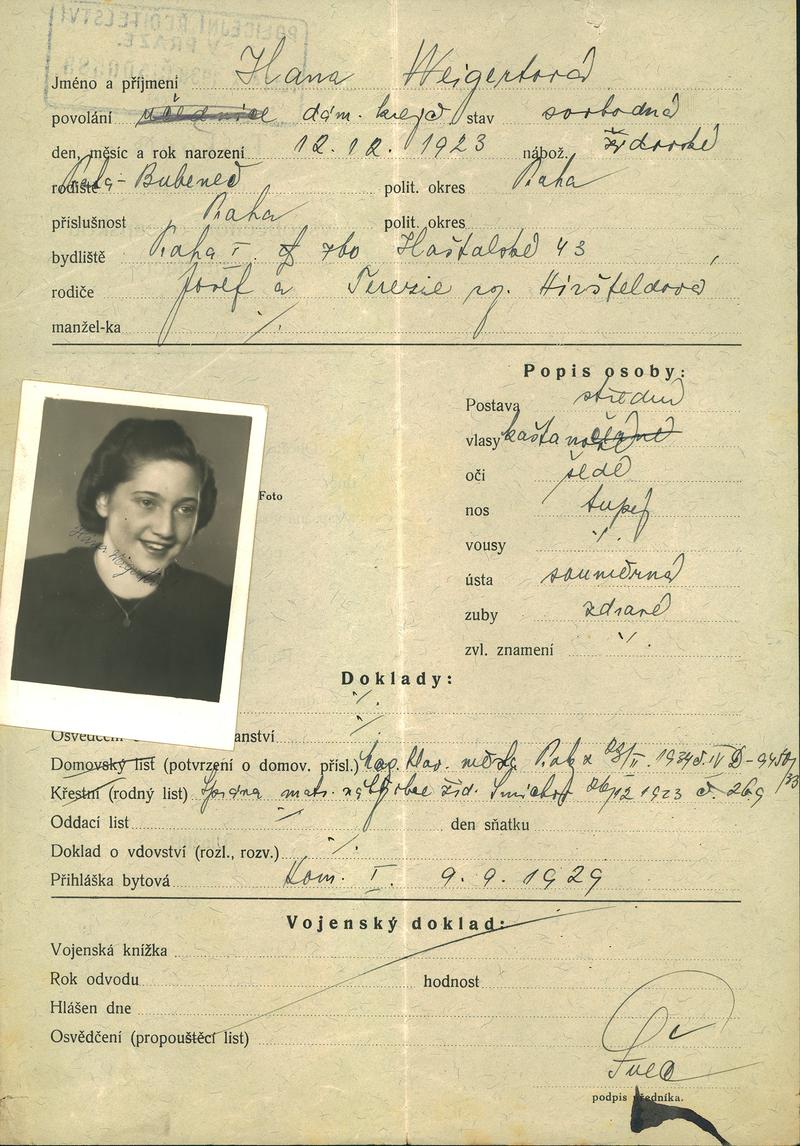 POLICEJNÍ ŘEDITELSTVÍ
V PRAZE.
Jméno a příjmení Hana Weigertová
povolání učednice dám. krejč stav svobodná
den, měsíc a rok narození 12. 12. 1923 nábož. židovské
rodiště Praha-Bubeneč polit. okres Praha
příslušnost Praha polit. okres
bydliště Praha I. 760 Haštalská 43
rodiče Josef a Terezie roz. Hiršfeldová
manžel-ka ./.
Popis osoby:
Postava střední
vlasy kaštanové
oči šedé
nos tupý
vousy ./.
ústa souměrná
zuby zdravé
zvl. znamení ./.
Foto
Hana Weigertová
Doklady:
./.
Osvědčení anství ./.
Domovský list (potvrzení o domov. přísl.) mag. hlav. města Prahy
Křestní (rodný list) Správa matr. náb. obce žid. Smíchov 1923 č. 269
Oddací list ./. den sňatku
Doklad o vdovství (rozl., rozv.) ./.
Přihláška bytová Kom. I. 9. 9. 1929
Vojenský doklad:
Vojenská knížka
Rok odvodu hodnost
Hlášen dne
Osvědčení (propouštěcí list)
podpis úředníka.